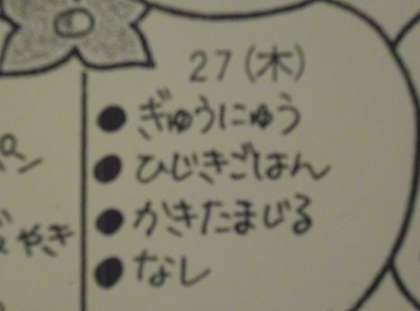 27(木)
●ぎゅうにゅう
●ひじきごはん
●かきたまじる
●なし
パン
やき